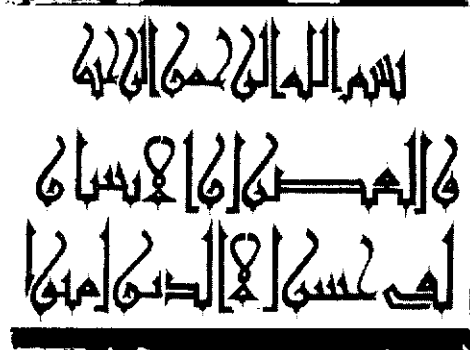 بسم الله الرحمن الرحيم
والعصر إن الإنسان
لفي خسر إلا الذين آمنوا